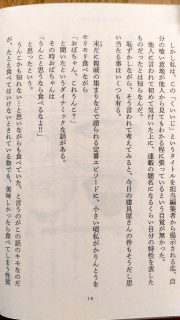 しかし私は、この「くいいじ」というタイトルを担当編集者から提示される迄、自
分の喰い意地が他人から見てもわかる程に張っているという自覚が無かった。
他人に言われて初めて気付いた上に、連載の題名になるくらい自分の特性を表した
言葉だったのである。
恥ずかしながら、そう言われて考えてみると、今日の建具屋さんの件もそうだし思
い当たる事はいくつも有る。
未だに親戚の集まりなどで語られる定番エピソードに、小さい頃私がかりんとうを
モリモリ
「おばちゃん、これうんこ?」
と聞いたというダイナミックな話がある。
その時おばちゃんは
「うんこと思うなら食べるなよ!!」
と思ったという。
うんこかも知れない…と思いながら食べていた、と言うのがこの話のキモなのだ
が、たとえ食べてはいけないとされている物でも、美味しかったら食べてしまう性質
18